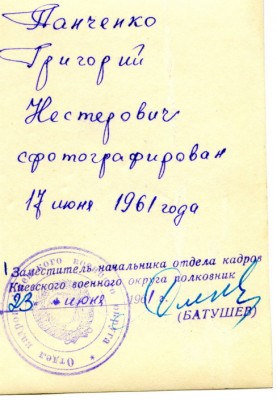 Панченко
Григорий
Нестерович
сфотографирован
17 июня 1961 года
Заместитель начальника отдела кадров
Киевского военного округа полковник
23 июня 1961 г.
(БАТУШЕВ)
Отдел кадров
военного округа